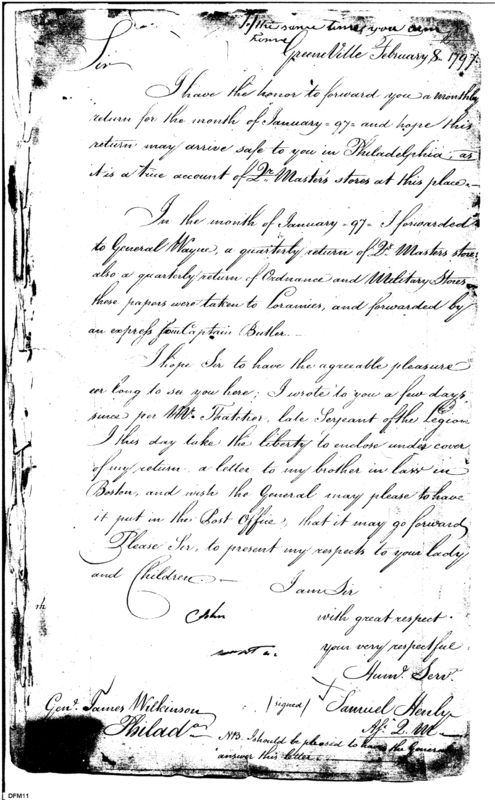 At the same time, you
Greene Ville February 8. 1797.
Sir
I have the honor to forward you a monthly
return for the month of January = 97 = and hope this
return may arrive safe to you in Philadelphia, as
it is a true account of Qr. Master's stores at this place.
In the month of January = 97 = I forwarded
to General Wayne, a quarterly return of Qr. Masters stores
also a quarterly return of Ordnance and Military Stores
these papers were taken to Loramies, and forwarded by
an express from Captain Butler.
I hope Sir to have the agreeable pleasure
eer long to see you here; I wrote to you a few days
since per Mr. Thatcher, late Serjeant of the Legion
I this day take the liberty to enclose under cover
of my return a letter to my brother in law in
Boston, and wish the General may please to have
it put in the Post Office, that it may go forward
Please Sir, to present my respects to your lady
and Children —
I am Sir
with great respect
your very respectful
Huml. Serv.
(signed) Samuel Henly
Genl. James Wilkinson
Af: Q.M.
Philada
NB. I should be pleased to have the General
answer this letter.
DFM11